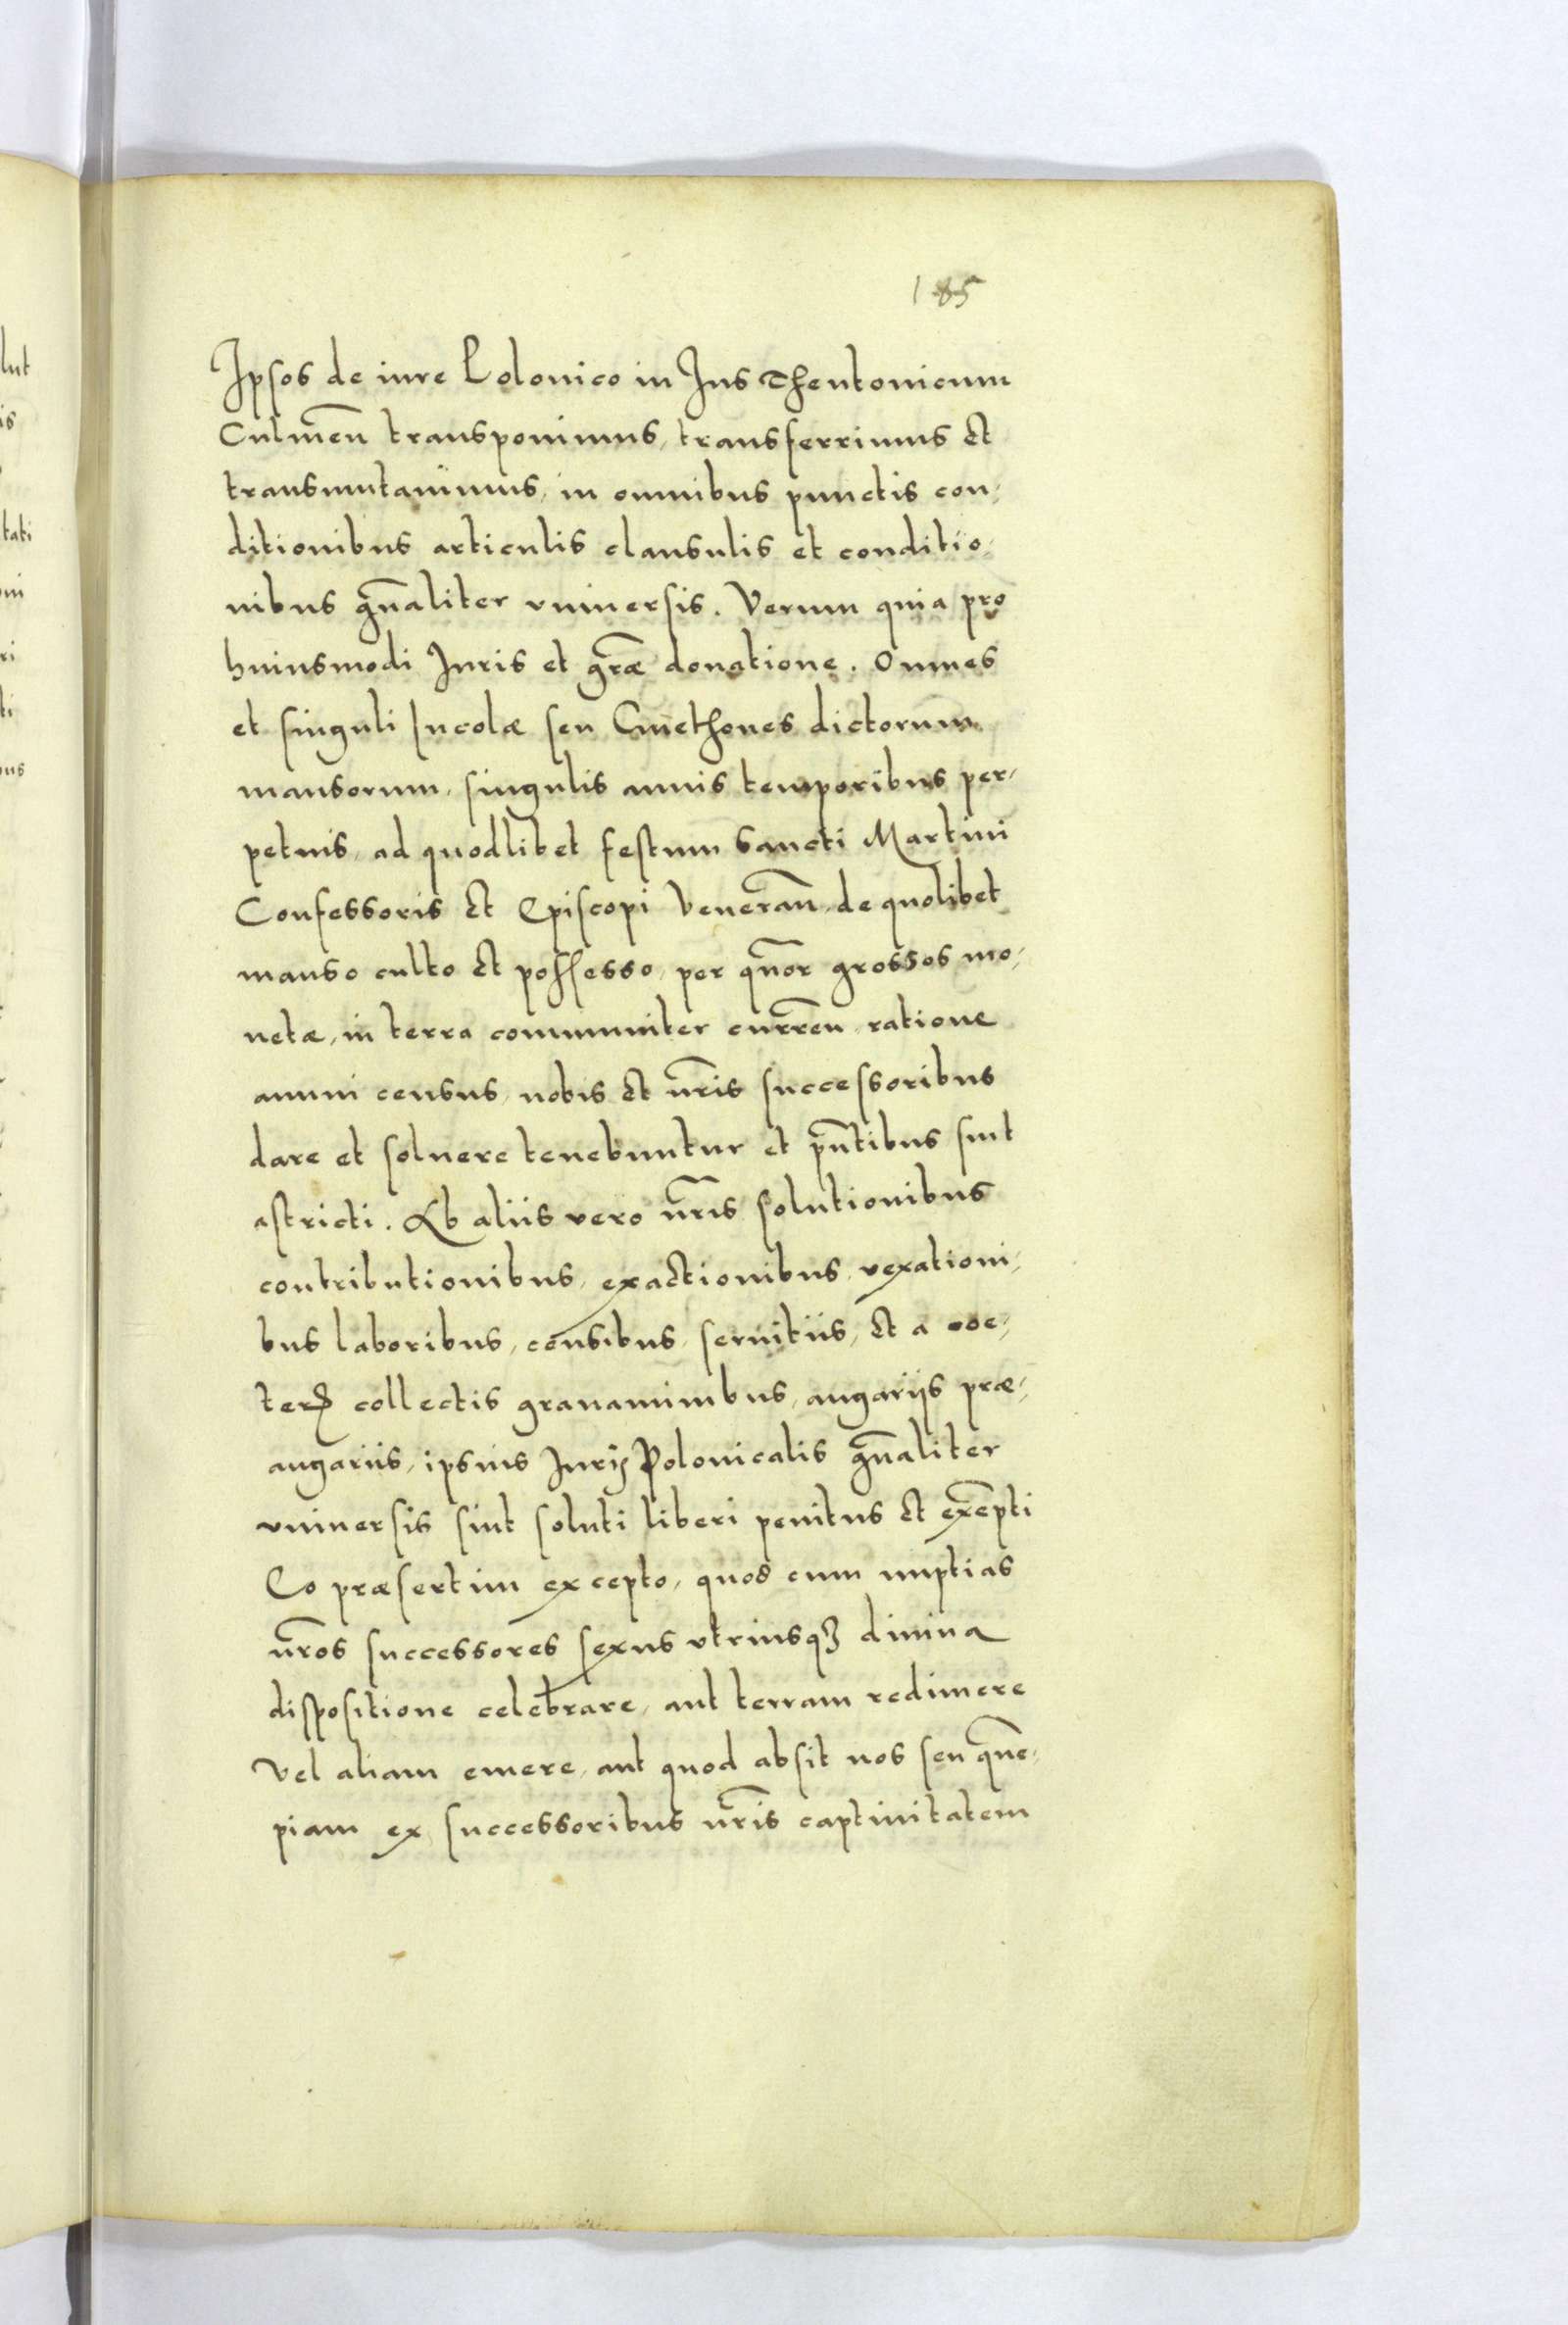 185
Ipsos de iure Polonico in Ius Theutonicum
Culmeñ transponimus, transferrimus et
transmutauimus, in omnibus punctis con,
ditionibus articulis clausulis et conditio,
nibus gn̄aliter vniuersis. Verum quia pro
huiusmodi Iuris et gr̄æ donatione. Omnes
et singuli Incolæ seu Cmethones dictorum
mansorum, singulis annis temporibus per,
petuis, ad quodlibet festum Sancti Martini
Confessoris et Episcopi Venerañ, de quolibet
manso culto et possesso, per qu̅or grossos mo,
netæ, in terra communiter curreñ, ratione
annui census, nobis et n̄ris successoribus
dare et soluere tenebuntur et pn̄tibus sint
astricti. Ab aliis vero n̄ris solutionibus
contributionibus, exactionibus, vexationi,
bus laboribus, censibus, seruitiis, et a coe,
terꝭ collectis grauaminibus, angariis præ,
angariis, ipsius Iurꝭ Polonicalis gn̄aliter
vniuersis sint soluti liberi penitus et exēpti
Eo præsertim excepto, quod cum nuptias
n̄ros successores sexus vtriusqꝫ diuina
dispositione celebrare, aut terram redimere
Vel aliam emere, aut quod absit nos seu que̅,
piam ex successoribus n̄ris captiuitatem